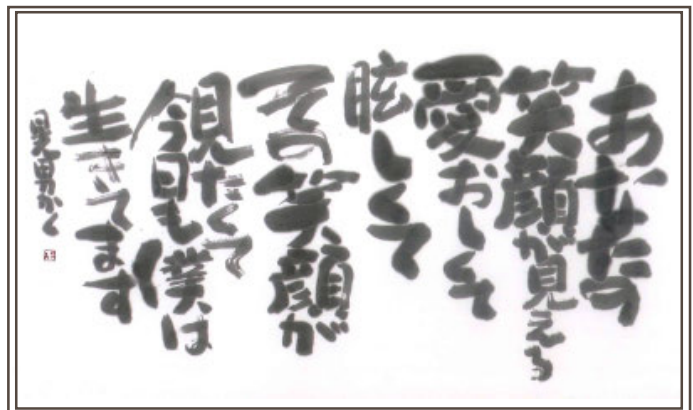 あなたの
笑顔が見える
愛おしくて
眩しくて
その笑顔が
見たくて
今日も僕は
生きてます